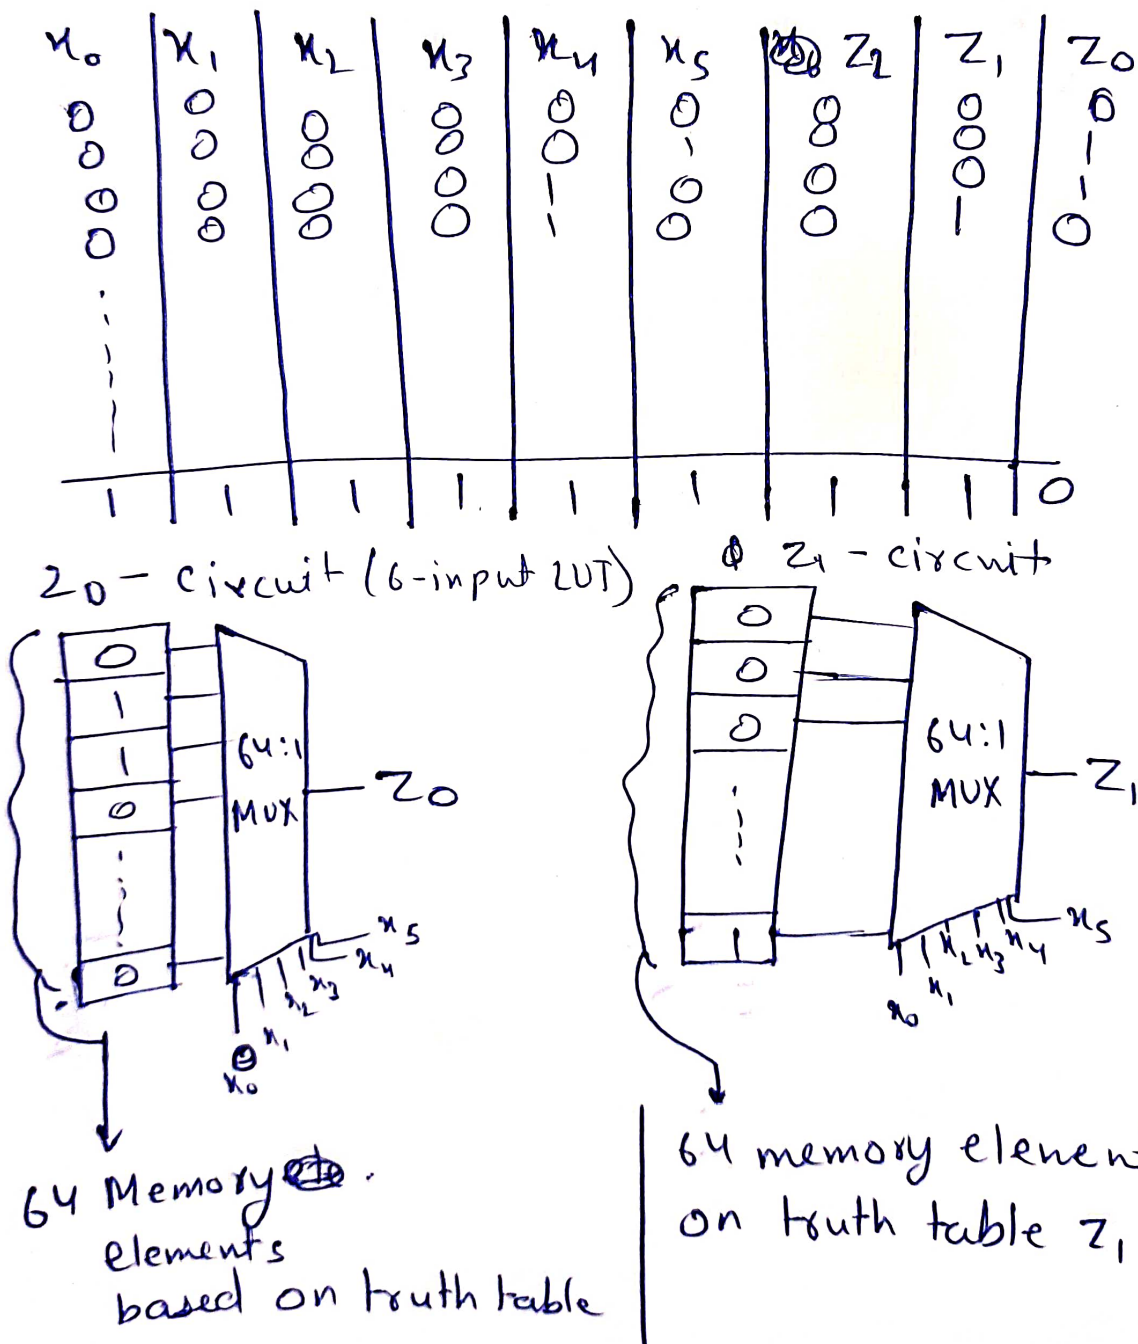 x₀ x₁ x₂ x₃ x₄ x₅ Z₂ Z₁ Z₀
0 0 0 0 0 0 0 0 0
0 0 0 0 0 1 0 0 1
0 0 0 0 1 0 0 0 1
0 0 0 0 1 0 0 1 0
1 1 1 1 1 1 1 1 0
Z₀ - circuit (6-input LUT)
Z₁ - circuit
0
1
1
0
0
64:1
MUX
Z₀
x₀
x₁
x₂
x₃
x₄
x₅
64 Memory
elements
based on truth table
0
0
0
1
64:1
MUX
Z₁
x₀
x₁
x₂
x₃
x₄
x₅
64 memory elemen
on truth table Z₁